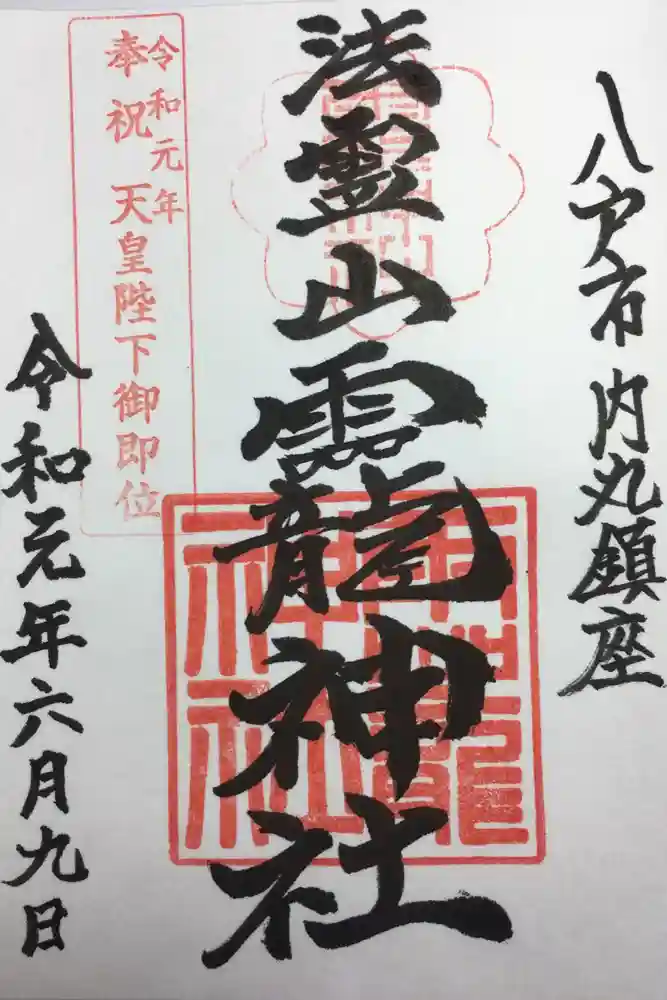 八戸市内丸鎮座
法霊山龗神社
令和元年
奉祝 天皇陛下御即位
令和元年六月九日